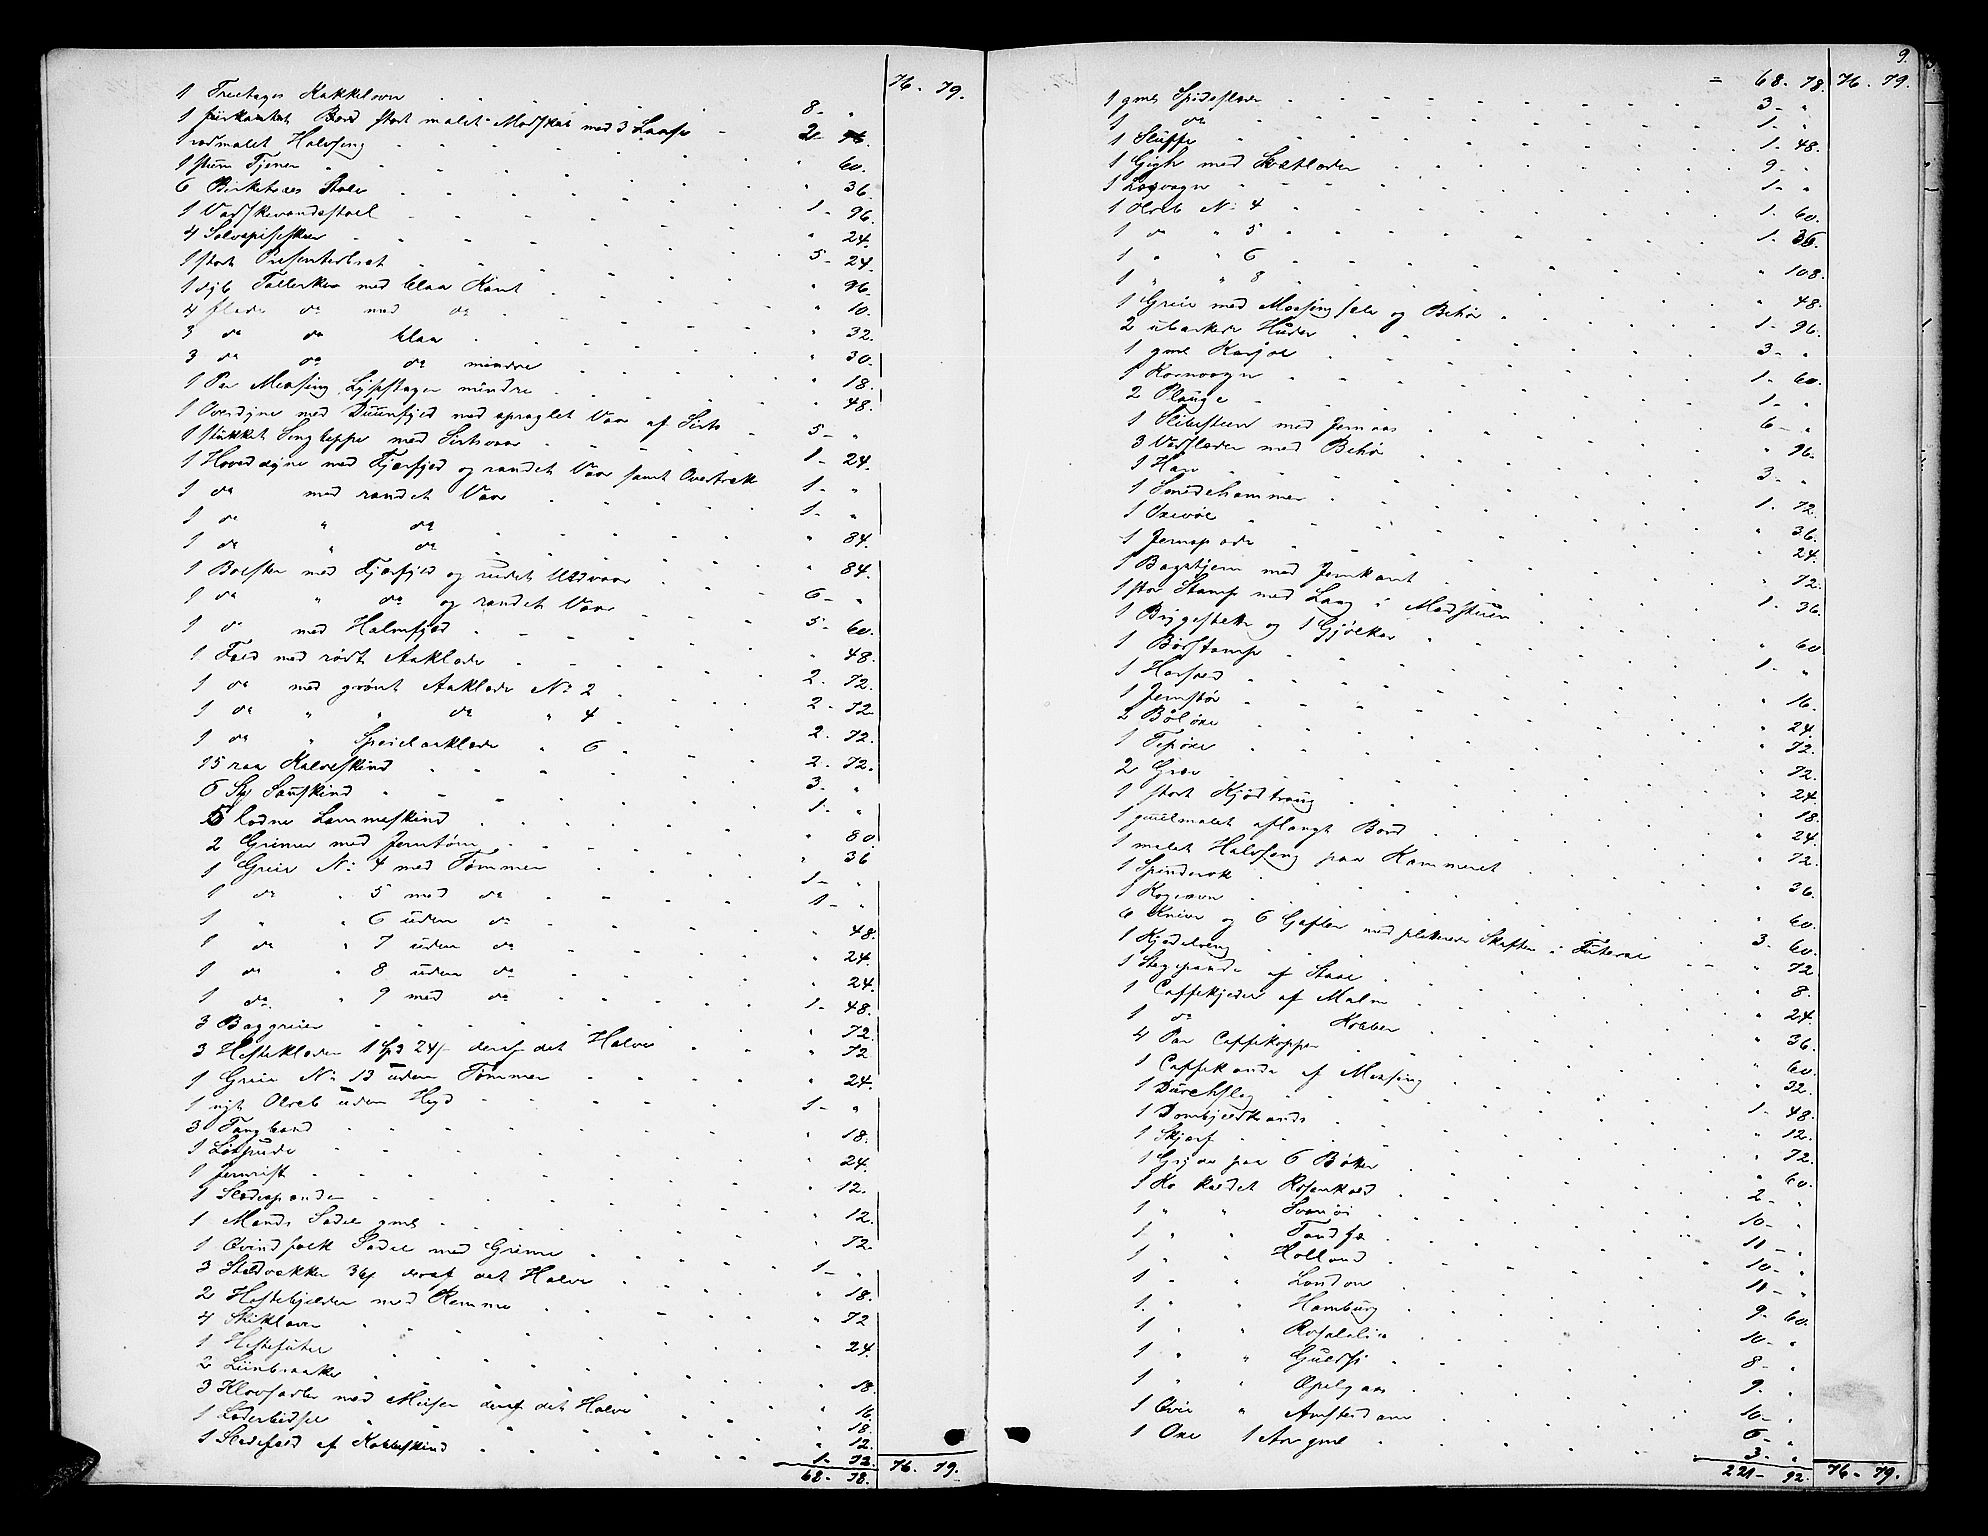 76. 79.
1 Treetages Kakkelovn . . . . 8- "
1 firkantet Bord stort malet Madskab med 3 Laase - 2- 96.
1 rødmalet Halvseng . . . . " 60.
1 stum Tjener . . . . " 36
6 Birketræes Stole . . . . 1- 96.
1 Vadskevandsstoel . . . . " 24.
4 Sølvspiseskeer . . . . 5- 24.
1 stort Presenterbræt . . . . " 96
1 dyb Tallerken med blaa Kant . . . . " 10.
4 flade do med do . . . . " 32.
3 do do blaa . . . . " 30.
3 do do do mindre . . . . " 18.
1 Par Messing Lysestager mindre . . . . " 48.
1 Overdyne med Duunfjed med spraglet Vaar af Sirts - 5- "
1 stukket Sengteppe med Sirtsvaar . . . . 1- 24.
1 Hoveddyne med Fjærfjed og randet Vaar samt Overtræk 1- "
1 do med randet Vaar . . . . 1- "
1 do " do . . . . " 84.
1 do " do . . . . " 84.
1 Bolster med Fjærfjed og rudet Uldvaar . . . . 6- "
1 do " do og randet Vaar . . . . 5- 60.
1 do med Halmfjed . . . . " 48.
1 Fæld med rødt Aaklæde . . . . 2. 72.
1 do med grønt Aaklæde No 2 . . . . 2- 72.
1 do " " do " 4 . . . . 2. 72.
1 do " Speilaaklæde " 6 . . . . 2. 72.
15 raa Kalveskind . . . . 3. "
6 Stk Sauskind . . . . 1- "
5 lodne Lammeskind . . . . " 80.
2 Grimer med Jerntøm . . . . " 36
1 Greie No 4 med Tømmer . . . . 1- "
1 do " 5 med do . . . . 1- "
1 " " 6 uden do . . . . " 48.
1 do " 7 uden do . . . . " 24.
1 do " 8 uden do . . . . " 24.
1 do " 9 med do . . . . 1- 48.
3 Baggreier . . . . " 72.
3 Hesteklokker 1 Spd 24 s deraf det Halve . . " 72
1 Greie No 13 uden Tømmer . . . . " 24.
1 nyt Olreb uden Hegd . . . . 1- "
3 Tangbaand . . . . " 18.
1 Løspude . . . . " 24.
1 Jernrist . . . . " 12.
1 Sledespande . . . . " 12.
1 Mands Sadel gml . . . . " 72.
1 Qvindfolk Sadel med Grime . . . . 1- "
3 36 s deraf det Halve . . . . " 18.
2 Hestebjelder med Remme . . . . " 72
4 . . . . " 24.
1 Hestefuter
2 Liinbraaker . . . . " 18.
3 Kløvsadler med Meiser deraf det Halve . . . . " 16
1 Læderbidsel . . . . " 18.
1 Sledefæld af Kobbeskind . . . . " 12.
1- 72.
68- 78. 76. 79.
9.
= 68. 78. 76. 79.
1 gml Spidsslæde . . . . 3- "
1 do . . . . 1- "
1 Sluffe . . . . 1- 48.
1 Gigh med Skatlæder . . . . 9- "
1 Lasvogn . . . . 1- "
1 Olreb No 4 . . . . 1. 60.
1 do " 5 . . . . 1. 36.
1 " " 6 . . . . " 108.
1 " " 8 . . . . " 48.
1 Greie med Messingsæle og Behør . . . . 1- 96.
2 ubarkede Huder . . . . 3- "
1 gml Karjol . . . . 1- 60.
1 Kornvogn . . . . 1- "
2 Plauge . . . . 6- "
1 Slibesteen med Jernaas . . . . " 96.
3 Vadslæder med Behør . . . . 3- "
1 Harv . . . . 1. 72.
1 Smedehammer . . . . " 36.
1 . . . . " 24.
1 Jernspade . . . . " 72.
1 Bagstjern med Jernkant . . . . 1. 36.
1 stor Stamp med Laag i Madstuen
1 Bryggestette og 1 Gjølekar . . . . " 60
1 Bøsstamp . . . . 1- "
1 Hørsæd . . . . " 16.
1 Jernstør . . . . " 24.
2 Bøløxe . . . . " 72.
1 Tepøxe . . . . " 72.
2 Græv . . . . " 24.
1 stort Kjødtraug . . . . " 18.
1 guulmalet aflangt Bord . . . . " 24.
1 malet Halvseng paa Kammeret . . . . " 72.
1 Spinderok . . . . " 36.
1 Kogeovn . . . . " 60.
6 Knive og 6 Gafler med pletterede Skafter i Futeral - - 3. 60.
1 . . . . " 72
1 Stegepande af Staal . . . . " 8.
1 Caffekjedel af Malm . . . . " 24.
1 do " Kobber . . . . " 36.
4 Par Caffekopper . . . . " 60.
1 Caffekande af Messing . . . . " 32.
1 Durchslag . . . . 1- 48.
1 . . . . " 12.
1 Skjærf . . . . " 72.
1 Grjøe paa 6 Bøker . . . . " 60.
1 Ko kaldet Rosenkold . . . . 2- "
1 " " Svanøi . . . . 10- "
1 " " . . . . 11- "
1 " " Holland . . . . 10- "
1 " " London . . . . 11- "
1 " " Hamburg . . . . 9- 60.
1 " " Rosalilia . . . . 10- "
1 " " Guldsi . . . . 8- "
1 " " Apelgaas . . . . 9. "
1 Qvie " Amsterdam . . . . 10- "
1 Oxe 1 Aar gml . . . . 6- "
3- "
221- 92. 76- 79.